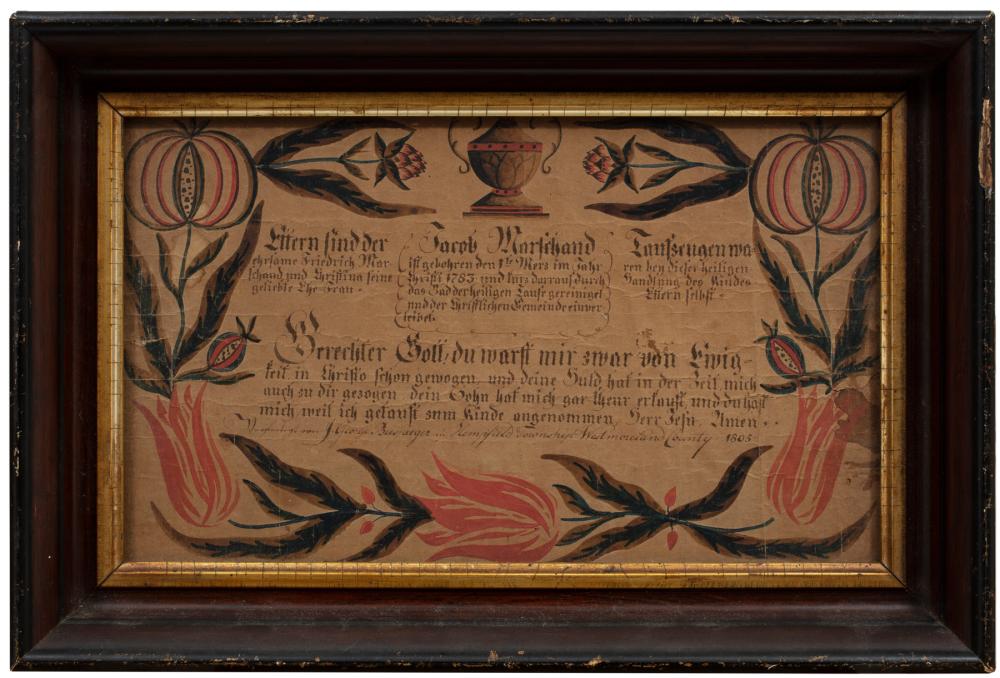 Eltern sind der
ehrsame Friedrich Mar-
schand und Christina seine
geliebte Ehe-Frau.
Jacob Marschand
ist gebohren den 1te Merz im Jahr
Christi 1783 und kurz darrauf durch
das Bad der heiligen Taufe gereiniget
und der Christlichen Gemeinde einver-
leibet.
Taufzeugen wa-
ren bey dieser heiligen
Handlung des Kindes
Eltern selbst.
Gerechter Gott, du warst mir zwar von Ewig-
keit in Christo schon gewogen, und deine Huld hat in der Zeit mich
auch zu dir gezogen dein Sohn hat mich gar theur erkauft und du hast
mich weil ich getauft zum Kinde angenommen, Herr Jesu, Amen.
von J. George Busjaeger in Hempfield Township Westmoreland County 1805